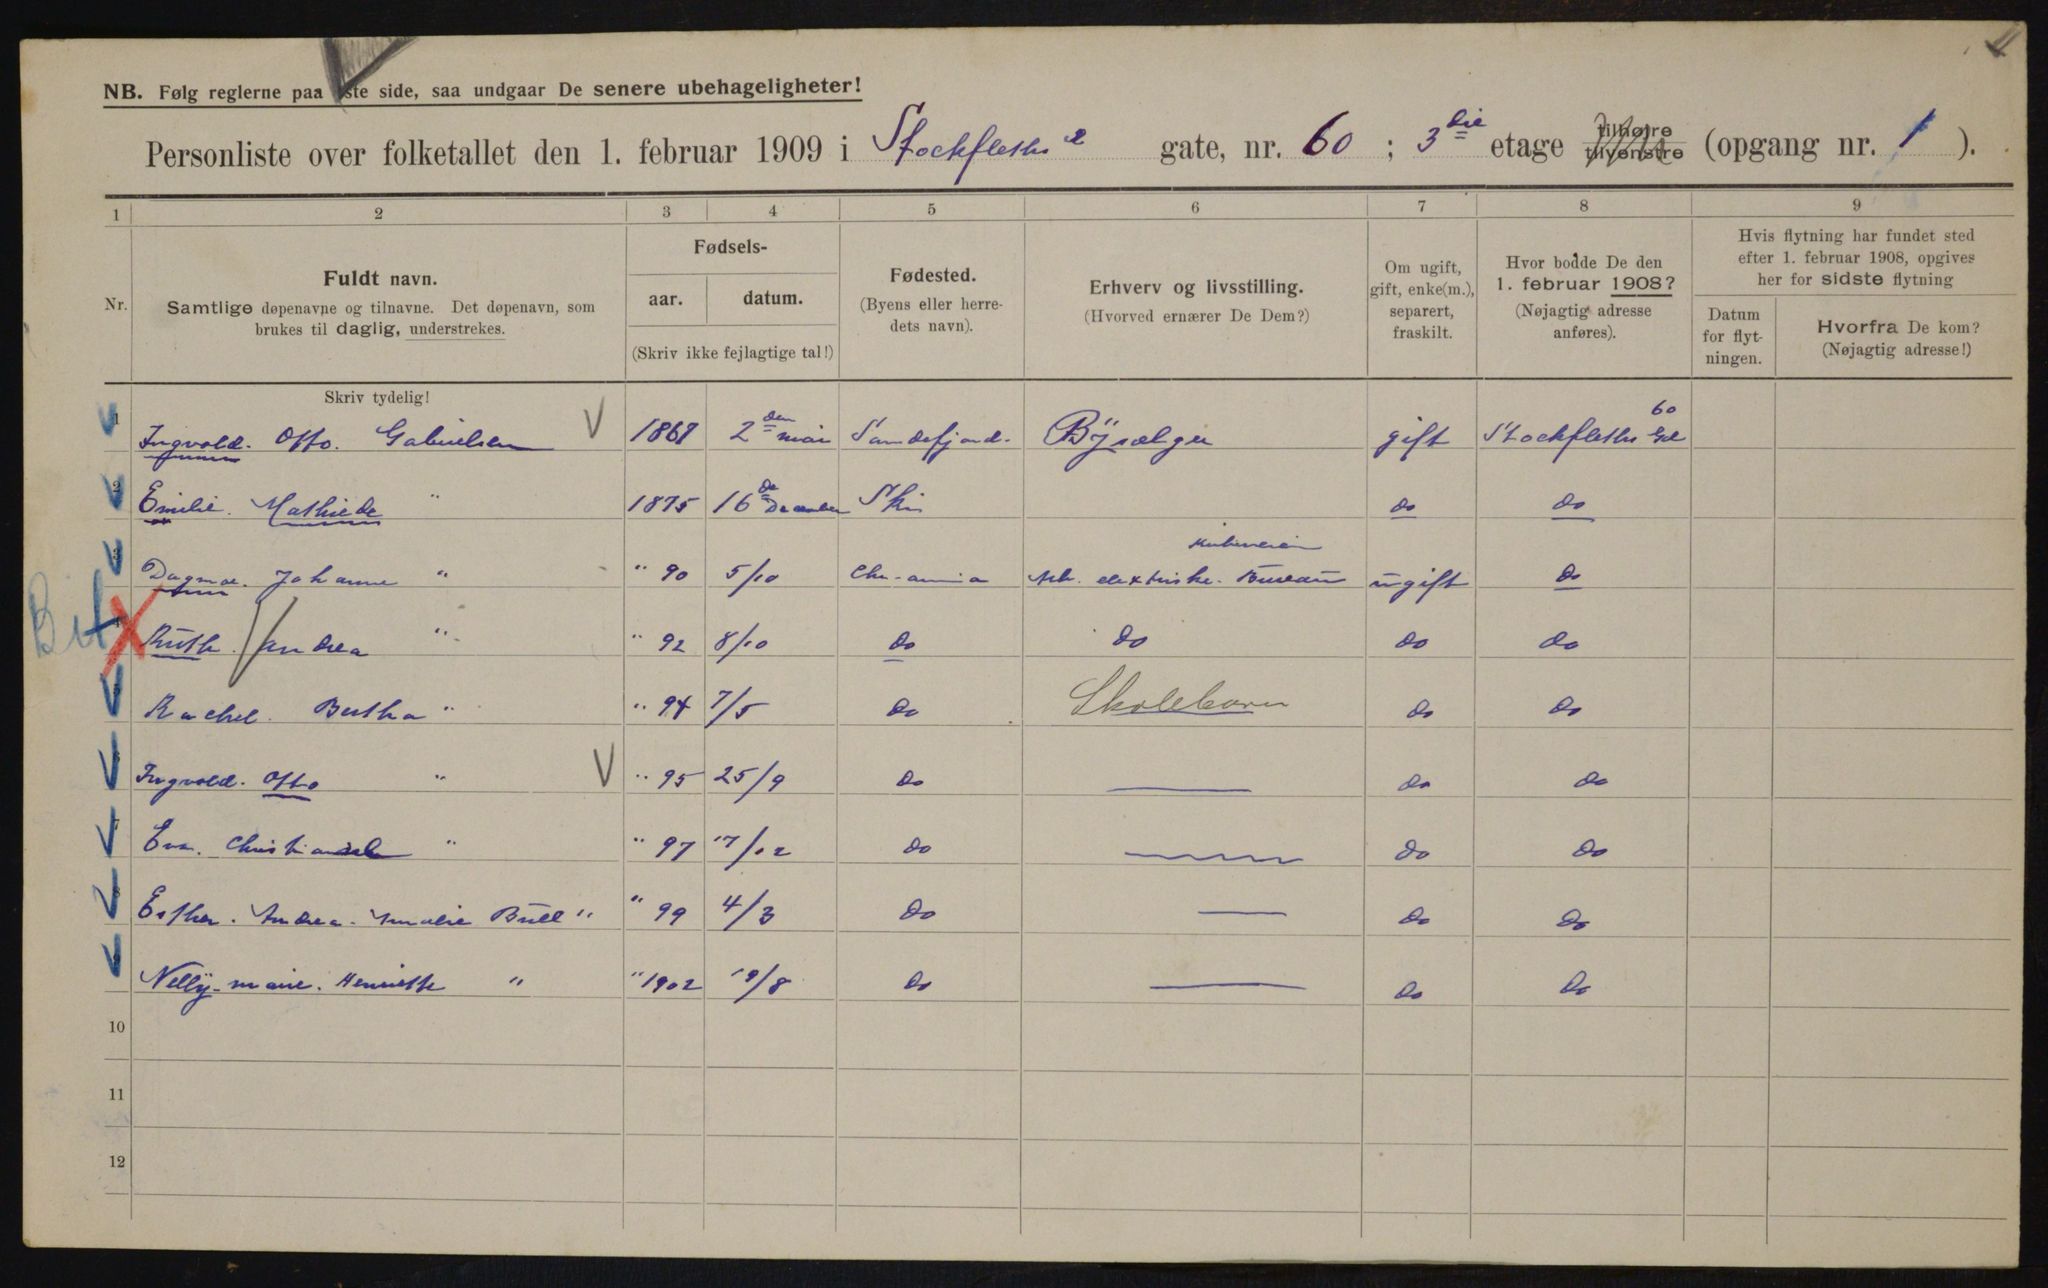 NB. Følg reglerne paa 1ste side, saa undgaar De senere ubehageligheter!
Personliste over folketallet den 1. februar 1909 i Stockfleths gate, nr. 60 ; 3die etage tilhøire tilvenstre (opgang nr. 1 ).
1 2 3 4 5 6 7 8 9
Nr.
Fuldt navn.
Samtlige døpenavne og tilnavne. Det døpenavn, som
brukes til daglig, understrekes.
Fødsels-
aar. datum.
(Skriv ikke fejlagtige tal!)
Fødested.
(Byens eller herre-
dets navn).
Erhverv og livsstilling.
(Hvorved ernærer De Dem?)
Om ugift,
gift, enke(m.),
separert,
fraskilt.
Hvor bodde De den
1. februar 1908?
(Nøjagtig adresse
anføres).
Hvis flytning har fundet sted
efter 1. februar 1908, opgives
her for sidste flytning
Datum
for flyt-
ningen.
Hvorfra De kom?
(Nøjagtig adresse!)
Skriv tydelig!
1 Ingvold. Otto. Gabrielsen 1867 2den mai Sandefjord. Bysælger gift Stockfleths 60
2 Emilie. Mathilde " 1875 16de December Ski do do
3 Dagmar. Johanne " " 90 5/10 Chr-ania elektriske. Bureau ugift do
Bit
4 Ruth. Andrea " " 92 8/10 do do do do
5 Rachel. Bertha " " 94 7/5 do Skolebarn do do
6 Ingvold. Otto " " 95 25/9 do do do
7 Eva. " " 97 17/12 do do do
8 Esther. Andrea. Amalie Bull " " 99 4/3 do do do
9 Nelly-marie. Henriette " " 1902 19/8 do do do
10
11
12